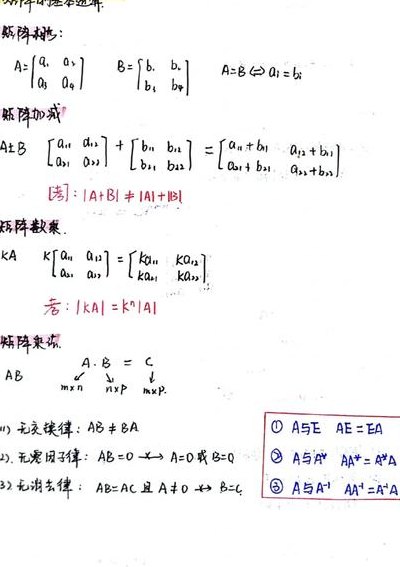 矩阵的基本运算
矩阵相等:
A=[a₁ a₂ a₃ a₄] B=[b₁ b₂ b₃ b₄] A=B⇔aᵢ=bᵢ
矩阵加减
A±B [a₁₁ a₁₂ a₂₁ a₂₂] + [b₁₁ b₁₂ b₂₁ b₂₂] = [a₁₁+b₁₁ a₁₂+b₁₂ a₂₁+b₂₁ a₂₂+b₂₂]
[考]: |A+B| ≠ |A|+|B|
矩阵数乘.
KA K[a₁₁ a₁₂ a₂₁ a₂₂] = [Ka₁₁ Ka₁₂ Ka₂₁ Ka₂₂]
考: |KA| = Kⁿ|A|
矩阵乘法.
A . B = C
AB
m×n n×p m×p.
(1) 无交换律: AB ≠ BA
(2). 无零因子律: AB=0 ↛ A=0 或 B=0
(3) 无消去律: AB=AC 且 A≠0 ↛ B=C
① A与E AE=EA
② A与A* AA*=A*A
③ A与A⁻¹ AA⁻¹=A⁻¹A